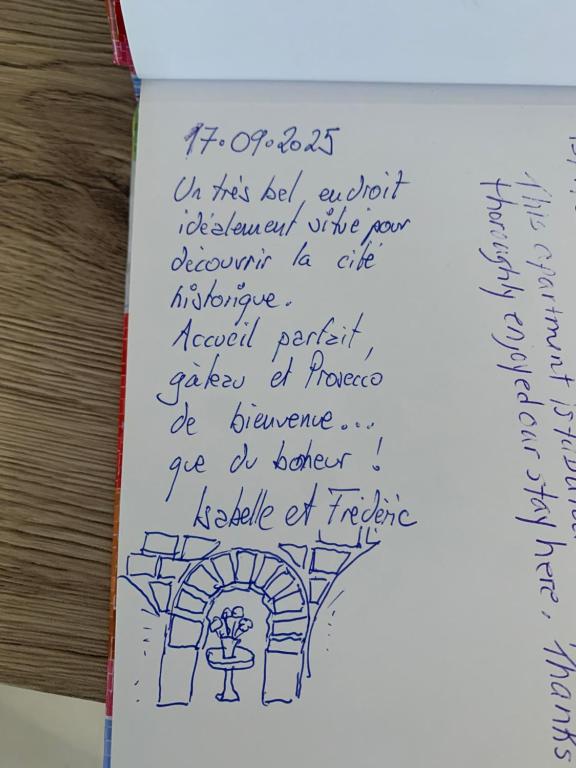 17.09.2025
Un très bel endroit
idéalement situé pour
découvrir la cité
historique.
Accueil parfait,
gâteau et Prosecco
de bienvenue...
que du boheur !
Isabelle et Frédéric
This apartment is
thoroughly enjoyed our stay here, Thanks